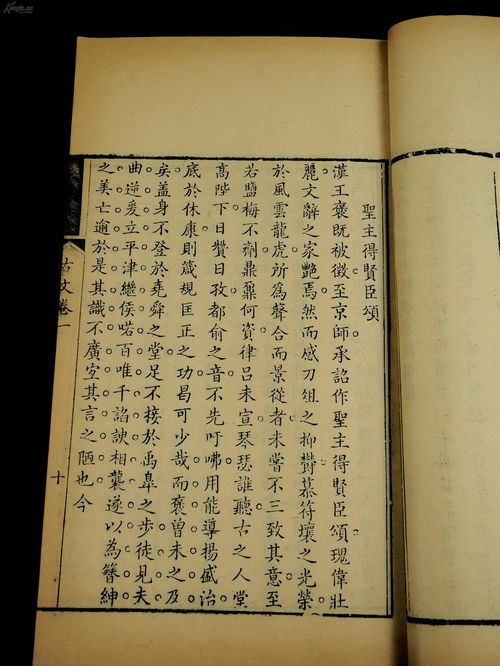 聖主得賢臣頌
漢王褒既被徵至京師承詔作聖主得賢臣頌瑰偉壯
麗文辭之家艷焉然而感刀俎之抑鬱慕符壤之光榮
於風雲龍虎所爲聲合而景從者未嘗不三致其意至
若鹽梅不劑鼎鼐何資律呂未宣琴瑟誰聽古之人堂
髙陛下日贊日孜都俞之音不先吁咈用能導揚盛治
底於休康則箴規匡正之功曷可少哉而褒曽未之及
矣盖身不登於堯舜之堂足不接於禹臯之步徒見夫
曲逆爰立平津繼侯喏百唯千諂諛相襲遂以為簪紳
之美亡逾於是其識不廣宜其言之陋也今
古文卷一
十